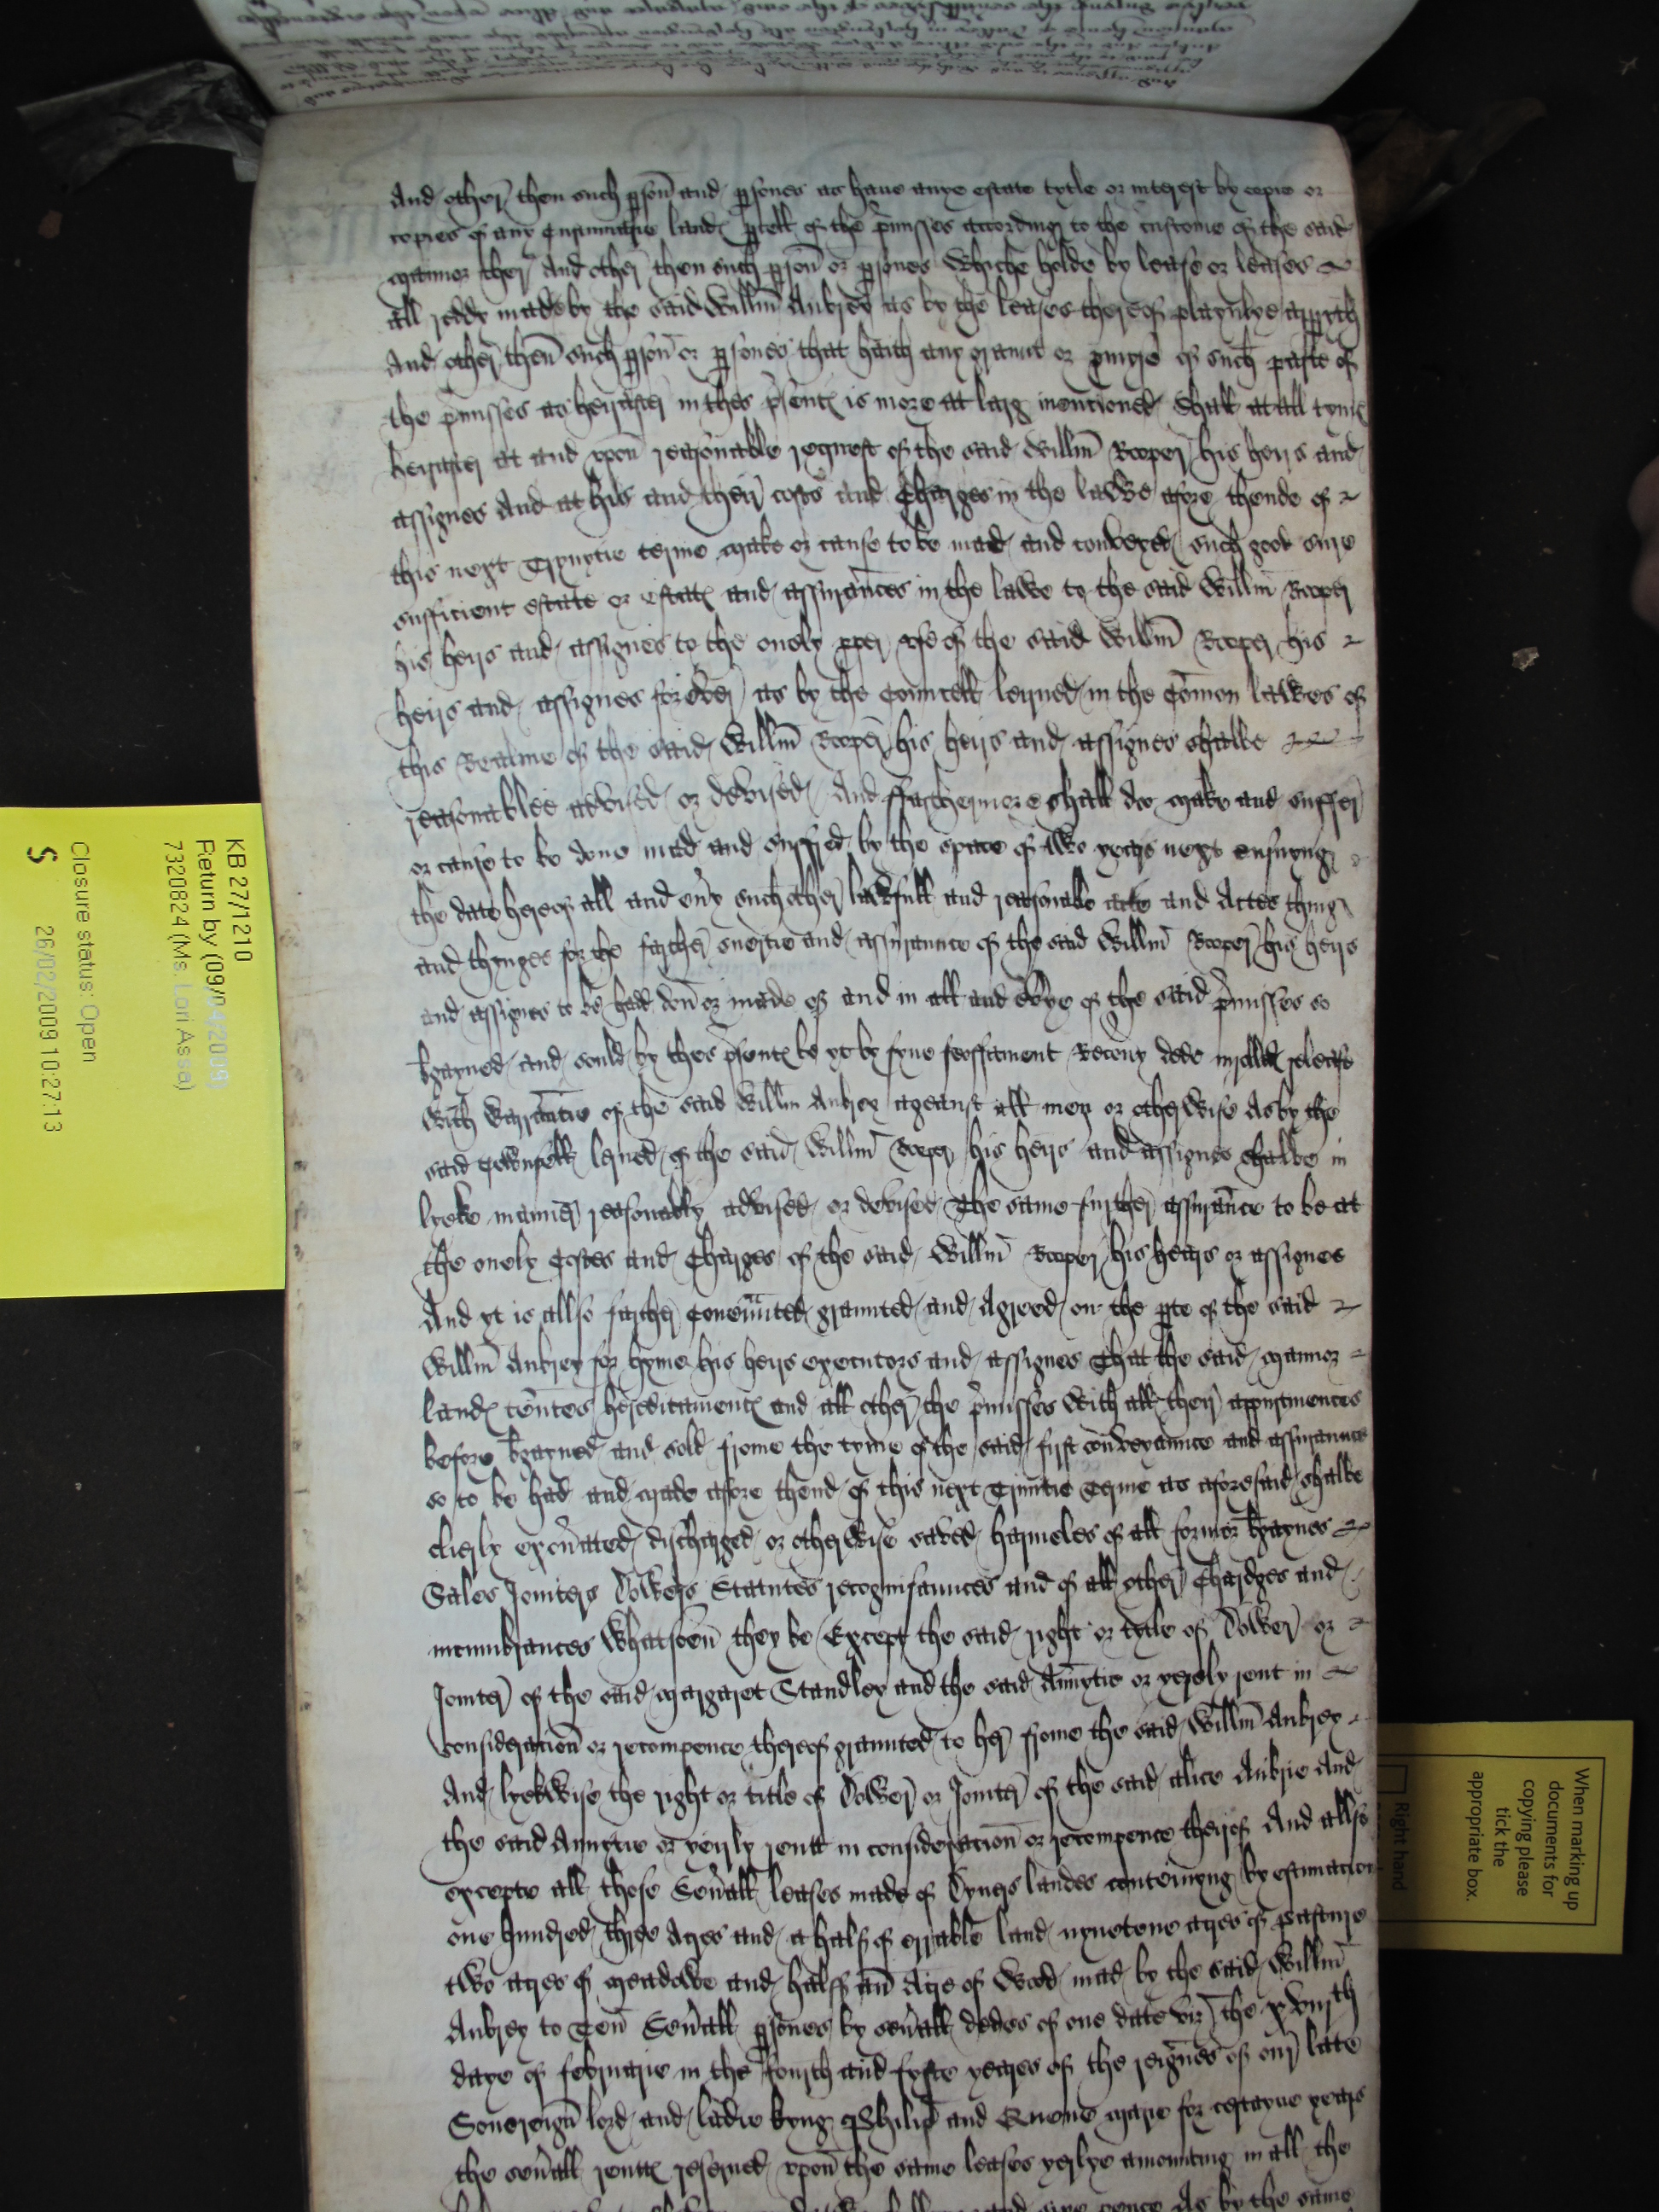 And other then such pson and psones as have anye estate tytle or interest by copie or
copies of any Customarie landes pcell of the pmisses according to the custome of the said
mannor ther And other then such pson or psones whiche holde by lease or leases
all redy made by the said Willm Aubrey as by the leases thereof playnlye apperyth
And other then such pson or psones that hath any graunt or of such parte of
the pmisses as herafter in thes psentes is more at larg mencioned Shall at all tymes
herafter at and upon reasonable request of the said Willm Rooper his heirs and
assignes And at his and their costes and Charges in the lawe afore thende of
this next Trynytie terme make or cause to be mad and conveyed such good sure
sufficient estate or estates and assurances in the lawe to the said Willm Rooper
his heirs and assignes to the onely pper use of the said Willm Rooper his
heirs and assignes for ever as by the Councell lerned in the Comon lawes of
this Realme of the said Willm Rooper his heirs and assignes shalbe
reasonablee advised or devised And ffarthermore shall doo make and suffer
or cause to be done mad and suffred by the space of two years next ensuyng
the date hereof all and evry such other lawfull and reasonable acte and Actes thing
and thynges for the farther suertie and assurance of the said Willm Rooper his heirs
and assignes to be had don or made of and in all and evrye of the said pmisses so
bgayned and sould by thes psentes be yt by fyne feoffament Recovry dede inrolled release
with warrantie of the said Willm Aubrey ageanst all men or otherwise As by the
said cownsell lerned of the said Willm Rooper his heirs and assignes shalbe in
lyeke manner reasonably advised or devised The same further assurance to be at
the onely Costes and Charges of the said Willm Rooper his hears or assignes
And yt is allso farther Covenanted graunted and Agreed on the pte of the said
Willm Aubrey for hyme his heirs executors and assignes That the said mannor
landes tentes hereditamentes and all other the pmisses with all their appurtinences
before bgayned and sold frome the tyme of the said fyrst conveyaunce and assuraunce
so to be had and made afore thend of this next Trinitie Terme as aforesaid shalbe
clerly exonrated discharged or otherwise saved harmeles of all former bgaynes
Sales Joniters Dowers Statutes recognisaunces and of all other Chardges and
incumbrances whatsoevr they be Except the said right or tytle of Dower or
Joniter of the said Margaret Standley and the said Annytie or yerely rent in
consideracion or recompence thereof graunted to her frome the said Willm Aubrey
And lyekwise the right or title of Dower or Joniter of the said alice Aubrie And
the said Annytie or yerly rentt in consideracion or recompence therof And allso
excepte all those Sevrall leases made of Dyvers landes conteinyng by estimacion
one hundred three Acres and a half of errable land nynetene acres of Pasture
two acres of meadowe and half an Acre of Wood mad by the said Willm
Aubrey to Ten Sevrall psones by sevrall dedes of one date viz the xviijth
daye of februarie in the fourth and fyfte yeares of the reignes of our late
Sovereign lord and ladie kyng Philip and Quene marie for certayne years
the sevrall renttes reserved upon the same leases yerlye amounting in all the
pence As by the same
KB 27/1210
Return by (09/04/2009)
7320824 (Ms. Lori Assa)
Closure status: Open
S 26/02/2009 10:27:13
When marking up
documents for
copying please
tick the
appropriate box.
Right hand